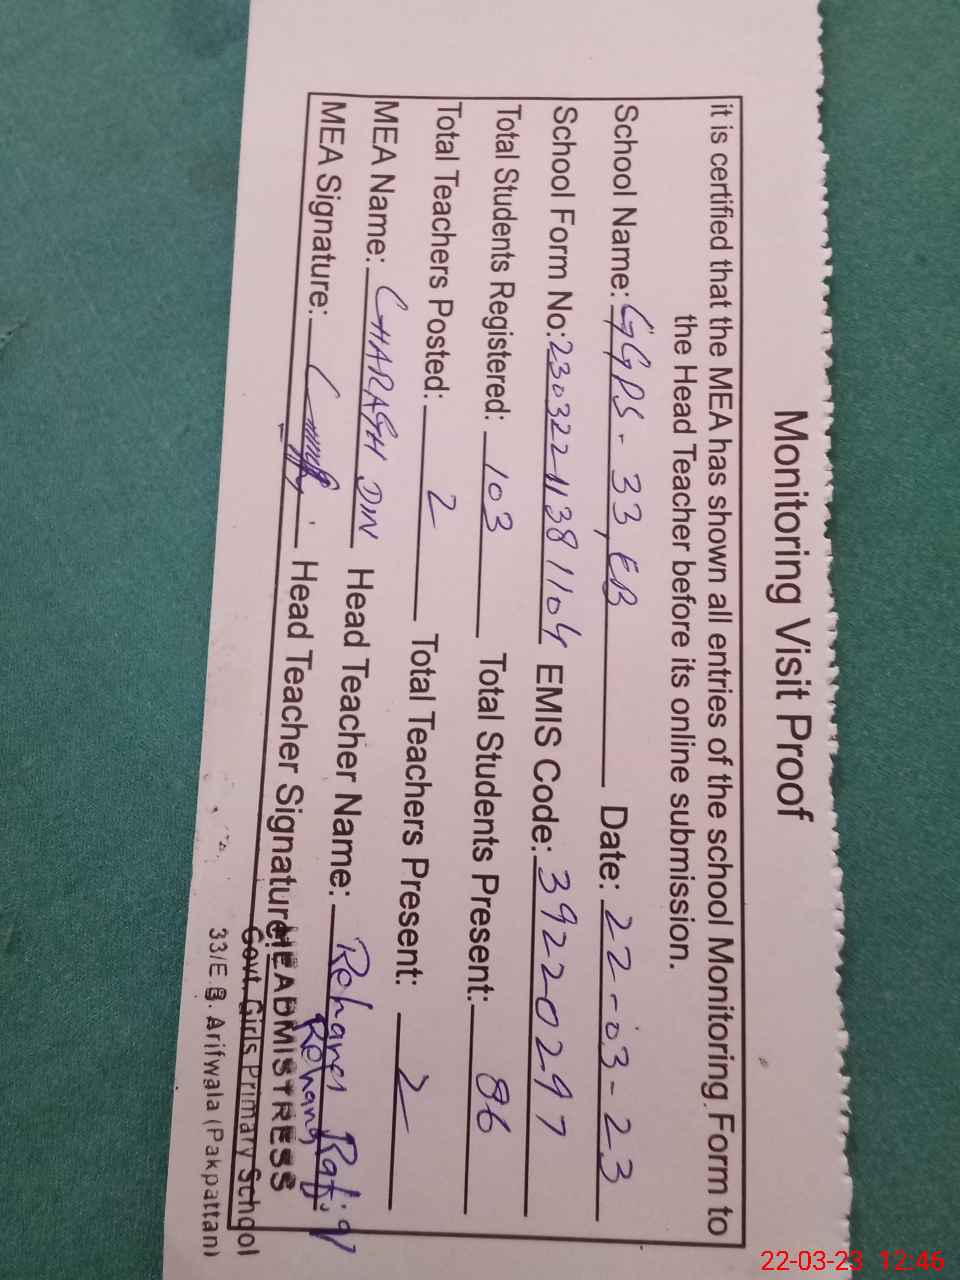 Monitoring Visit Proof
it is certified that the MEA has shown all entries of the school Monitoring Form to
the Head Teacher before its online submission.
School Name: GGPS - 33, EB Date: 22-03-23
School Form No: 23032211381104 EMIS Code: 39220297
Total Students Registered: 103 Total Students Present: 86
Total Teachers Posted: 2 Total Teachers Present: 2
MEA Name: CHARAGH DIN Head Teacher Name: Rehana Rafiq
MEA Signature: Head Teacher Signature: Rehana
HEADMISTRESS
Govt. Girls Primary School
33/E.B. Arifwala (Pakpattan)
22-03-23 12:46